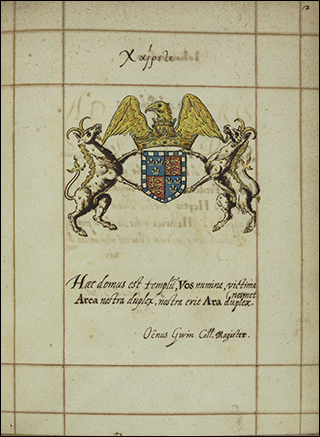 Χαίρετε
Hæc domus est templũ, Vos numina, victima nosmet
Area nostra duplex, nostra erit Ara duplex.
Oẽnus Gwin Coll. Magister.